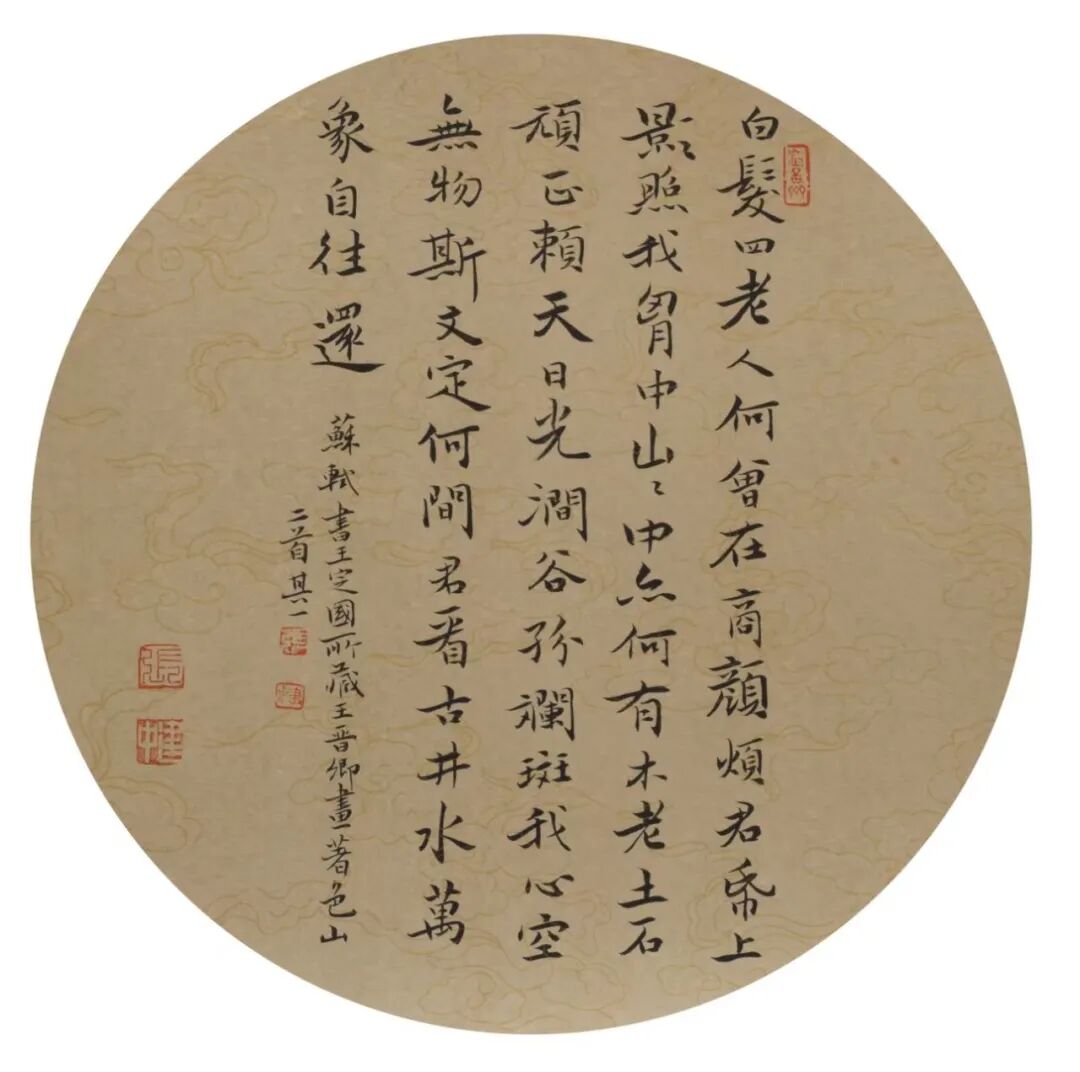 白髮四老人何曾在商顏煩君帋上
影照我胷中山〻中亦何有木老土石
頑正賴天日光澗谷紛斕斑我心空
無物斯文定何間君看古井水萬
象自往還
蘇軾書王定國所藏王晉卿畫著色山
二首其一
張